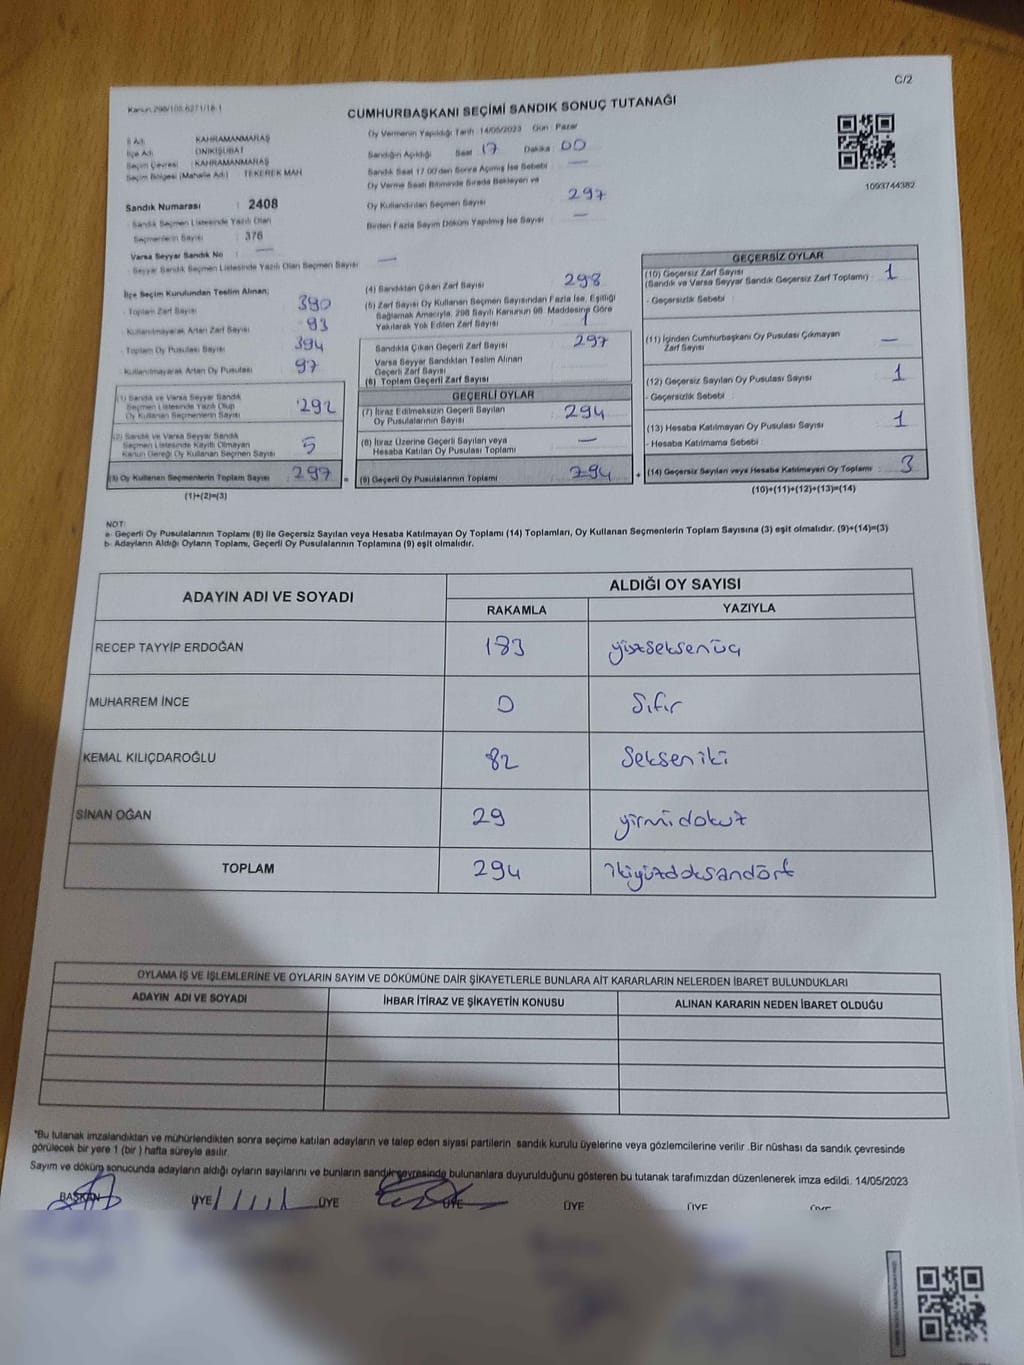 C/2
Kanun:298/105.6271/18.1
CUMHURBAŞKANI SEÇİMİ SANDIK SONUÇ TUTANAĞI
İl Adı : KAHRAMANMARAŞ
İlçe Adı : ONİKİŞUBAT
Seçim Çevresi : KAHRAMANMARAŞ
Seçim Bölgesi (Mahalle Adı) : TEKEREK MAH.
Sandık Numarası : 2408
Sandık Seçmen Listesinde Yazılı Olan
Seçmenlerin Sayısı : 376
Varsa Seyyar Sandık No : —
Seyyar Sandık Seçmen Listesinde Yazılı Olan Seçmen Sayısı : —
Oy Vermenin Yapıldığı Tarih :14/05/2023 Gün : Pazar
Sandığın Açıldığı Saat : 17 Dakika : 00
Sandık Saat 17.00'den Sonra Açılmış İse Sebebi : —
Oy Verme Saati Bitiminde Sırada Bekleyen ve
Oy Kullandırılan Seçmen Sayısı : 297
Birden Fazla Sayım Döküm Yapılmış İse Sayısı : —
1093744382
İlçe Seçim Kurulundan Teslim Alınan;
- Toplam Zarf Sayısı : 390
- Kullanılmayarak Artan Zarf Sayısı : 93
- Toplam Oy Pusulası Sayısı : 394
- Kullanılmayarak Artan Oy Pusulası : 97
(1) Sandık ve Varsa Seyyar Sandık
Seçmen Listesinde Yazılı Olup
Oy Kullanan Seçmenlerin Sayısı : 292
(2) Sandık ve Varsa Seyyar Sandık
Seçmen Listesinde Kayıtlı Olmayan
Kanun Gereği Oy Kullanan Seçmen Sayısı : 5
(3) Oy Kullanan Seçmenlerin Toplam Sayısı : 297
(1)+(2)=(3)
(4) Sandıktan Çıkan Zarf Sayısı : 298
(5) Zarf Sayısı Oy Kullanan Seçmen Sayısından Fazla İse, Eşitliği
Sağlamak Amacıyla, 298 Sayılı Kanunun 98. Maddesine Göre
Yakılarak Yok Edilen Zarf Sayısı : 1
Sandıkta Çıkan Geçerli Zarf Sayısı : 297
Varsa Seyyar Sandıktan Teslim Alınan
Geçerli Zarf Sayısı :
(6) Toplam Geçerli Zarf Sayısı
GEÇERLİ OYLAR
(7) İtiraz Edilmeksizin Geçerli Sayılan
Oy Pusulalarının Sayısı : 294
(8) İtiraz Üzerine Geçerli Sayılan veya
Hesaba Katılan Oy Pusulası Toplamı : —
(9) Geçerli Oy Pusulalarının Toplamı : 294
GEÇERSİZ OYLAR
(10) Geçersiz Zarf Sayısı
(Sandık ve Varsa Seyyar Sandık Geçersiz Zarf Toplamı) : 1
- Geçersizlik Sebebi :
(11) İçinden Cumhurbaşkanı Oy Pusulası Çıkmayan
Zarf Sayısı : —
(12) Geçersiz Sayılan Oy Pusulası Sayısı : 1
- Geçersizlik Sebebi :
(13) Hesaba Katılmayan Oy Pusulası Sayısı : 1
- Hesaba Katılmama Sebebi :
(14) Geçersiz Sayılan veya Hesaba Katılmayan Oy Toplamı : 3
(10)+(11)+(12)+(13)=(14)
NOT:
a- Geçerli Oy Pusulalarının Toplamı (9) ile Geçersiz Sayılan veya Hesaba Katılmayan Oy Toplamı (14) Toplamları, Oy Kullanan Seçmenlerin Toplam Sayısına (3) eşit olmalıdır. (9)+(14)=(3)
b- Adayların Aldığı Oyların Toplamı, Geçerli Oy Pusulalarının Toplamına (9) eşit olmalıdır.
ADAYIN ADI VE SOYADI ALDIĞI OY SAYISI
RAKAMLA YAZIYLA
RECEP TAYYİP ERDOĞAN 183 yüzseksenüç
MUHARREM İNCE 0 Sıfır
KEMAL KILIÇDAROĞLU 82 Sekseniki
SİNAN OĞAN 29 yirmidokuz
TOPLAM 294 ikiyüzdoksandört
OYLAMA İŞ VE İŞLEMLERİNE VE OYLARIN SAYIM VE DÖKÜMÜNE DAİR ŞİKAYETLERLE BUNLARA AİT KARARLARIN NELERDEN İBARET BULUNDUKLARI
ADAYIN ADI VE SOYADI İHBAR İTİRAZ VE ŞİKAYETİN KONUSU ALINAN KARARIN NEDEN İBARET OLDUĞU
*Bu tutanak imzalandıktan ve mühürlendikten sonra seçime katılan adayların ve talep eden siyasi partilerin sandık kurulu üyelerine veya gözlemcilerine verilir. Bir nüshası da sandık çevresinde
görülecek bir yere 1 (bir ) hafta süreyle asılır.
Sayım ve döküm sonucunda adayların aldığı oyların sayılarını ve bunların sandık çevresinde bulunanlara duyurulduğunu gösteren bu tutanak tarafımızdan düzenlenerek imza edildi. 14/05/2023
BAŞKAN ÜYE ÜYE ÜYE ÜYE ÜYE ÜYE